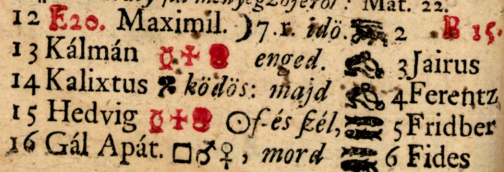 meny Mat. 22.
12 E20. Maximil. ☽7. r. idö. 2 B 15.
13 Kálmán ☿ ♰ enged. 3 Jairus
14 Kalixtus ködös: majd 4 Ferentz
15 Hedvig ☿ ♰ ☉ f és ſzél, 5 Fridber
16 Gál Apát. □ ♂ ♀, mord 6 Fides